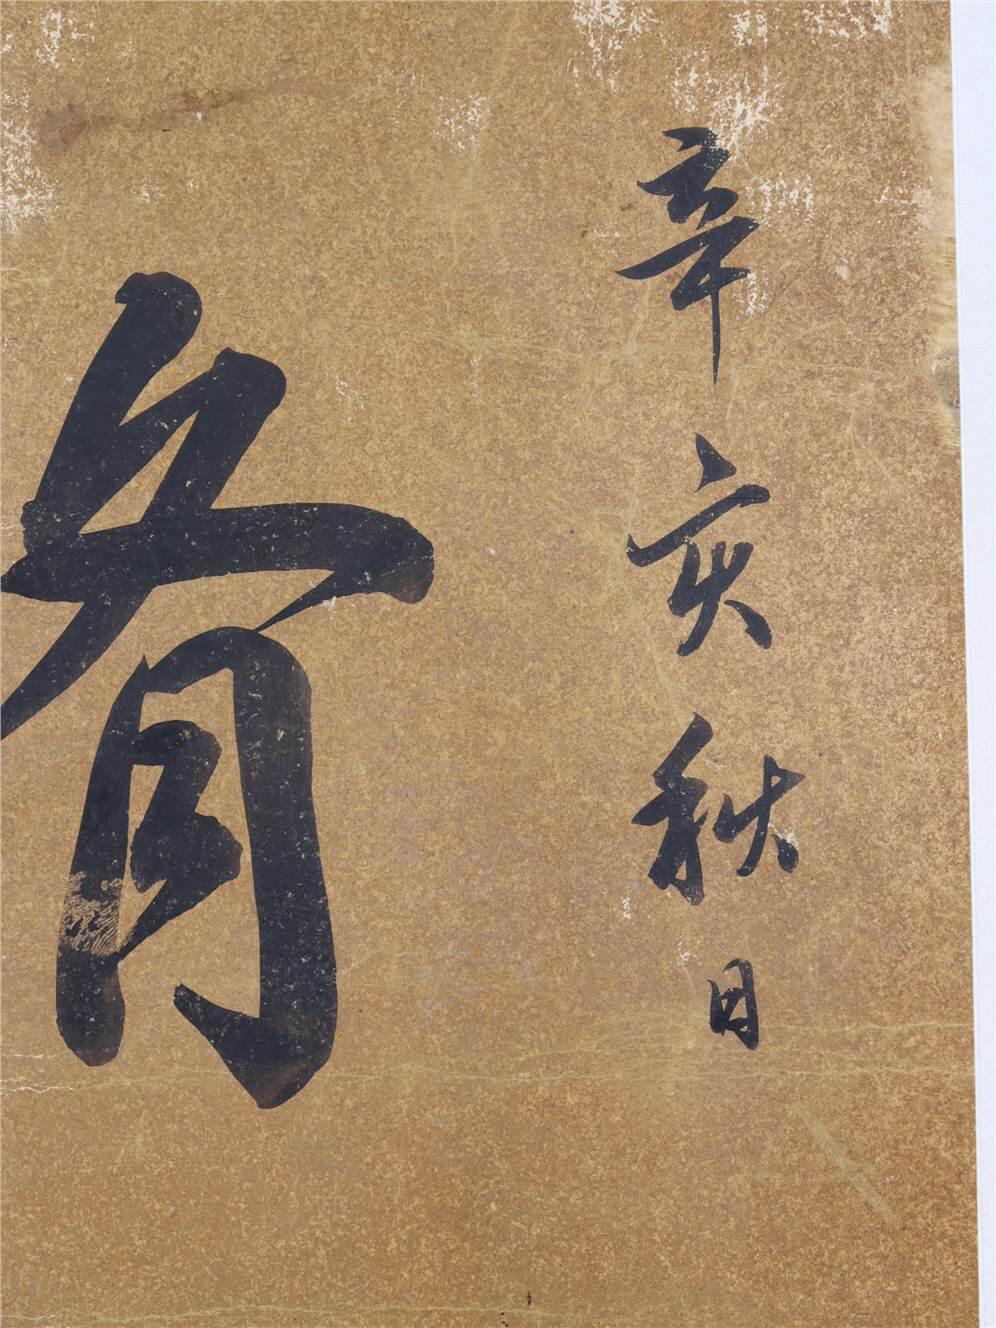 辛亥秋日